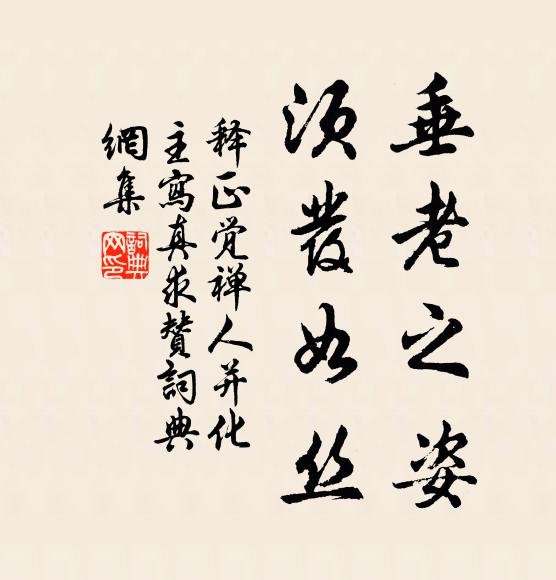 垂老之姿
须发如丝
释正觉禅人并化
主寫真求賛詞典
網集
詞典
网印